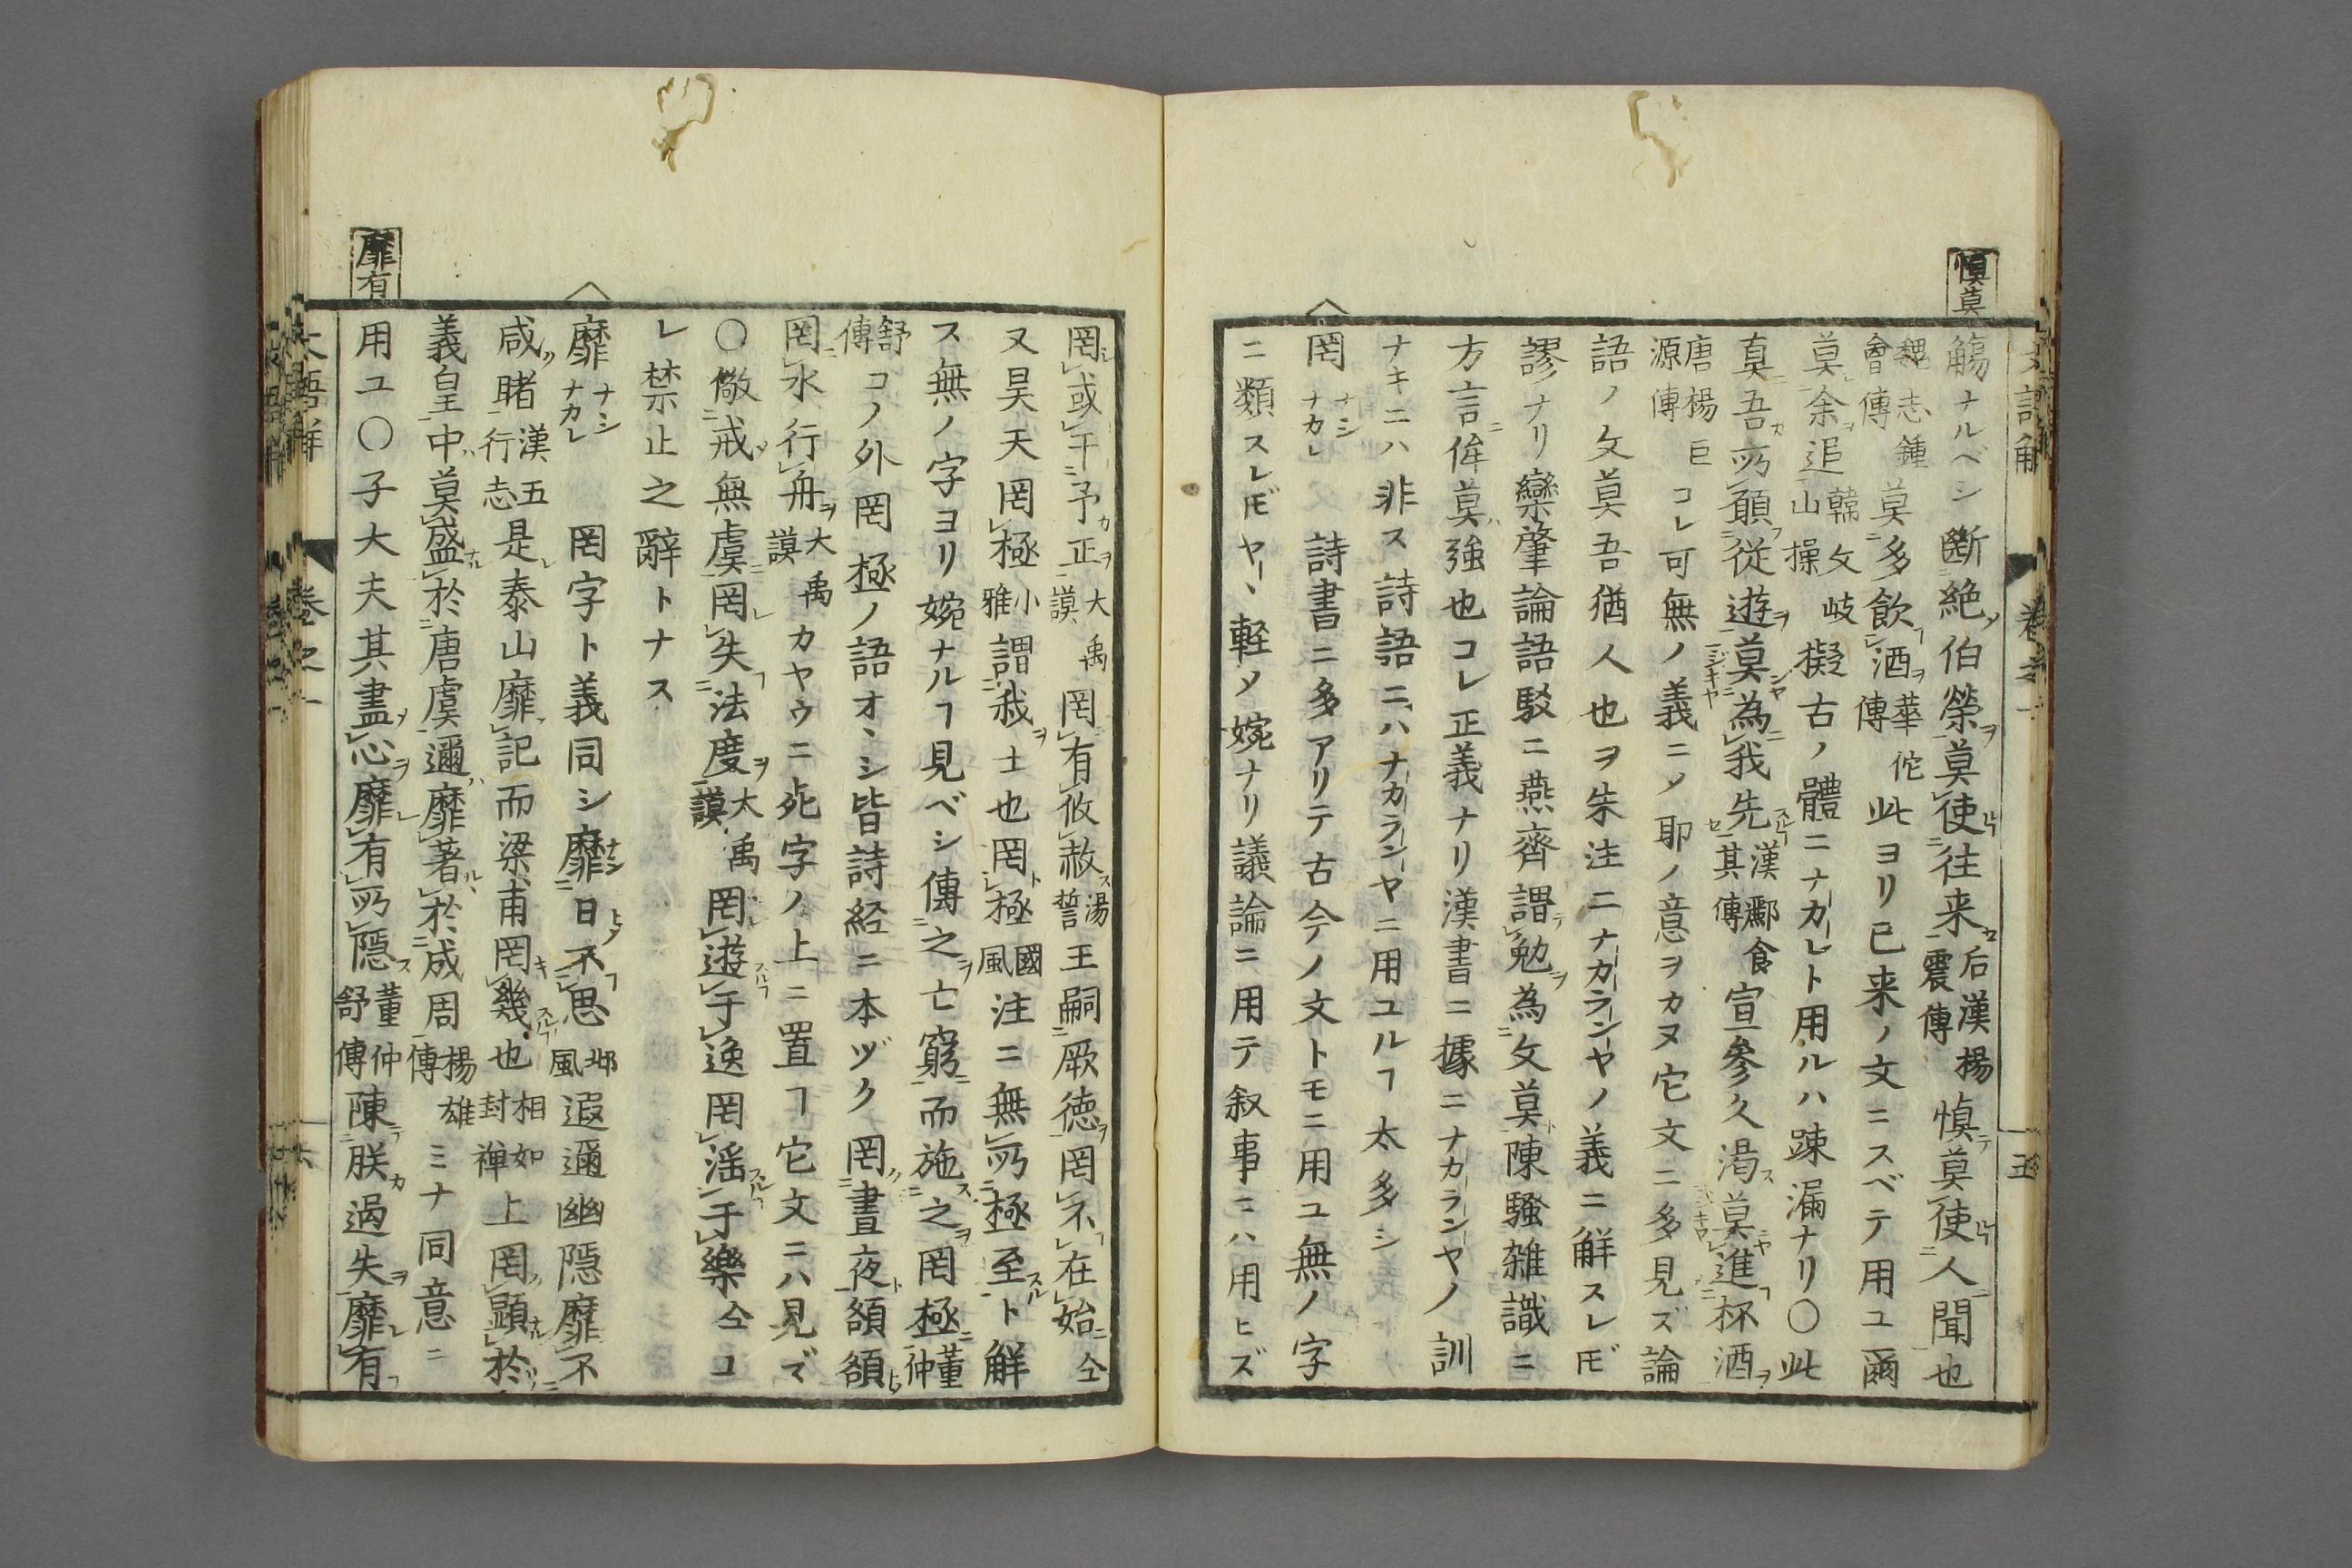 慎莫
觴ナルベシ斷絶伯榮莫使往来后漢楊震傳慎莫使人聞也
魏志鍾會傳莫多飲酒華佗傳此ヨリ已来ノ文ニスベテ用ユ爾
莫余追韓文岐山操擬古ノ體ニナカレト用ルハ踈漏ナリ〇此
真吾所願従遊莫為我先漢酈食其傳宣参久渇莫進杯酒
唐楊巨源傳コレ可無ノ義ニメ耶ノ意ヲカヌ它文ニ多見ズ論
語ノ文莫吾猶人也ヲ朱注ニナカランヤノ義ニ解スレㇳモ
謬ナリ欒肇論語駁ニ燕齊謂勉為文莫陳騤雑識ニ
方言侔莫強也コレ正義ナリ漢書ニ據ニナカランヤノ訓
ナキニハ非ス詩語ニハナカランヤニ用ユルヿ太多シ
罔ナシナカレ 詩書ニ多アリテ古今ノ文トモニ用ユ無ノ字
ニ類スレㇳモヤヽ軽メ婉ナリ議論ニ用テ叙事ニハ用ヒズ
罔或干予正大禹謨罔有攸赦湯誓王嗣厥徳罔不在始仝
又昊天罔極小雅謂我士也罔極國風注ニ無所極至ト解
ス無ノ字ヨリ婉ナルヿ見ベシ傳之亡窮而施之罔極董仲
舒傳コノ外罔極ノ語オヽシ皆詩経ニ本ヅク罔晝夜頟頟
罔水行舟大禹謨カヤウニ死字ノ上ニ置ヿ它文ニハ見ズ
〇儆戒無虞罔失法度大禹謨罔遊于逸罔淫于樂仝コ
レ禁止之辭トナス
靡ナシナカレ 罔字ト義同シ靡日不思邶風遐邇幽隠靡不
咸睹漢五行志是泰山靡記而梁甫罔幾也相如封禅上罔顕於
義皇中莫盛於唐虞邇靡著於成周楊雄傳ミナ同意ニ
用ユ〇子大夫其盡心靡有所隠董仲舒傳陳朕過失靡有
靡有
巻之一